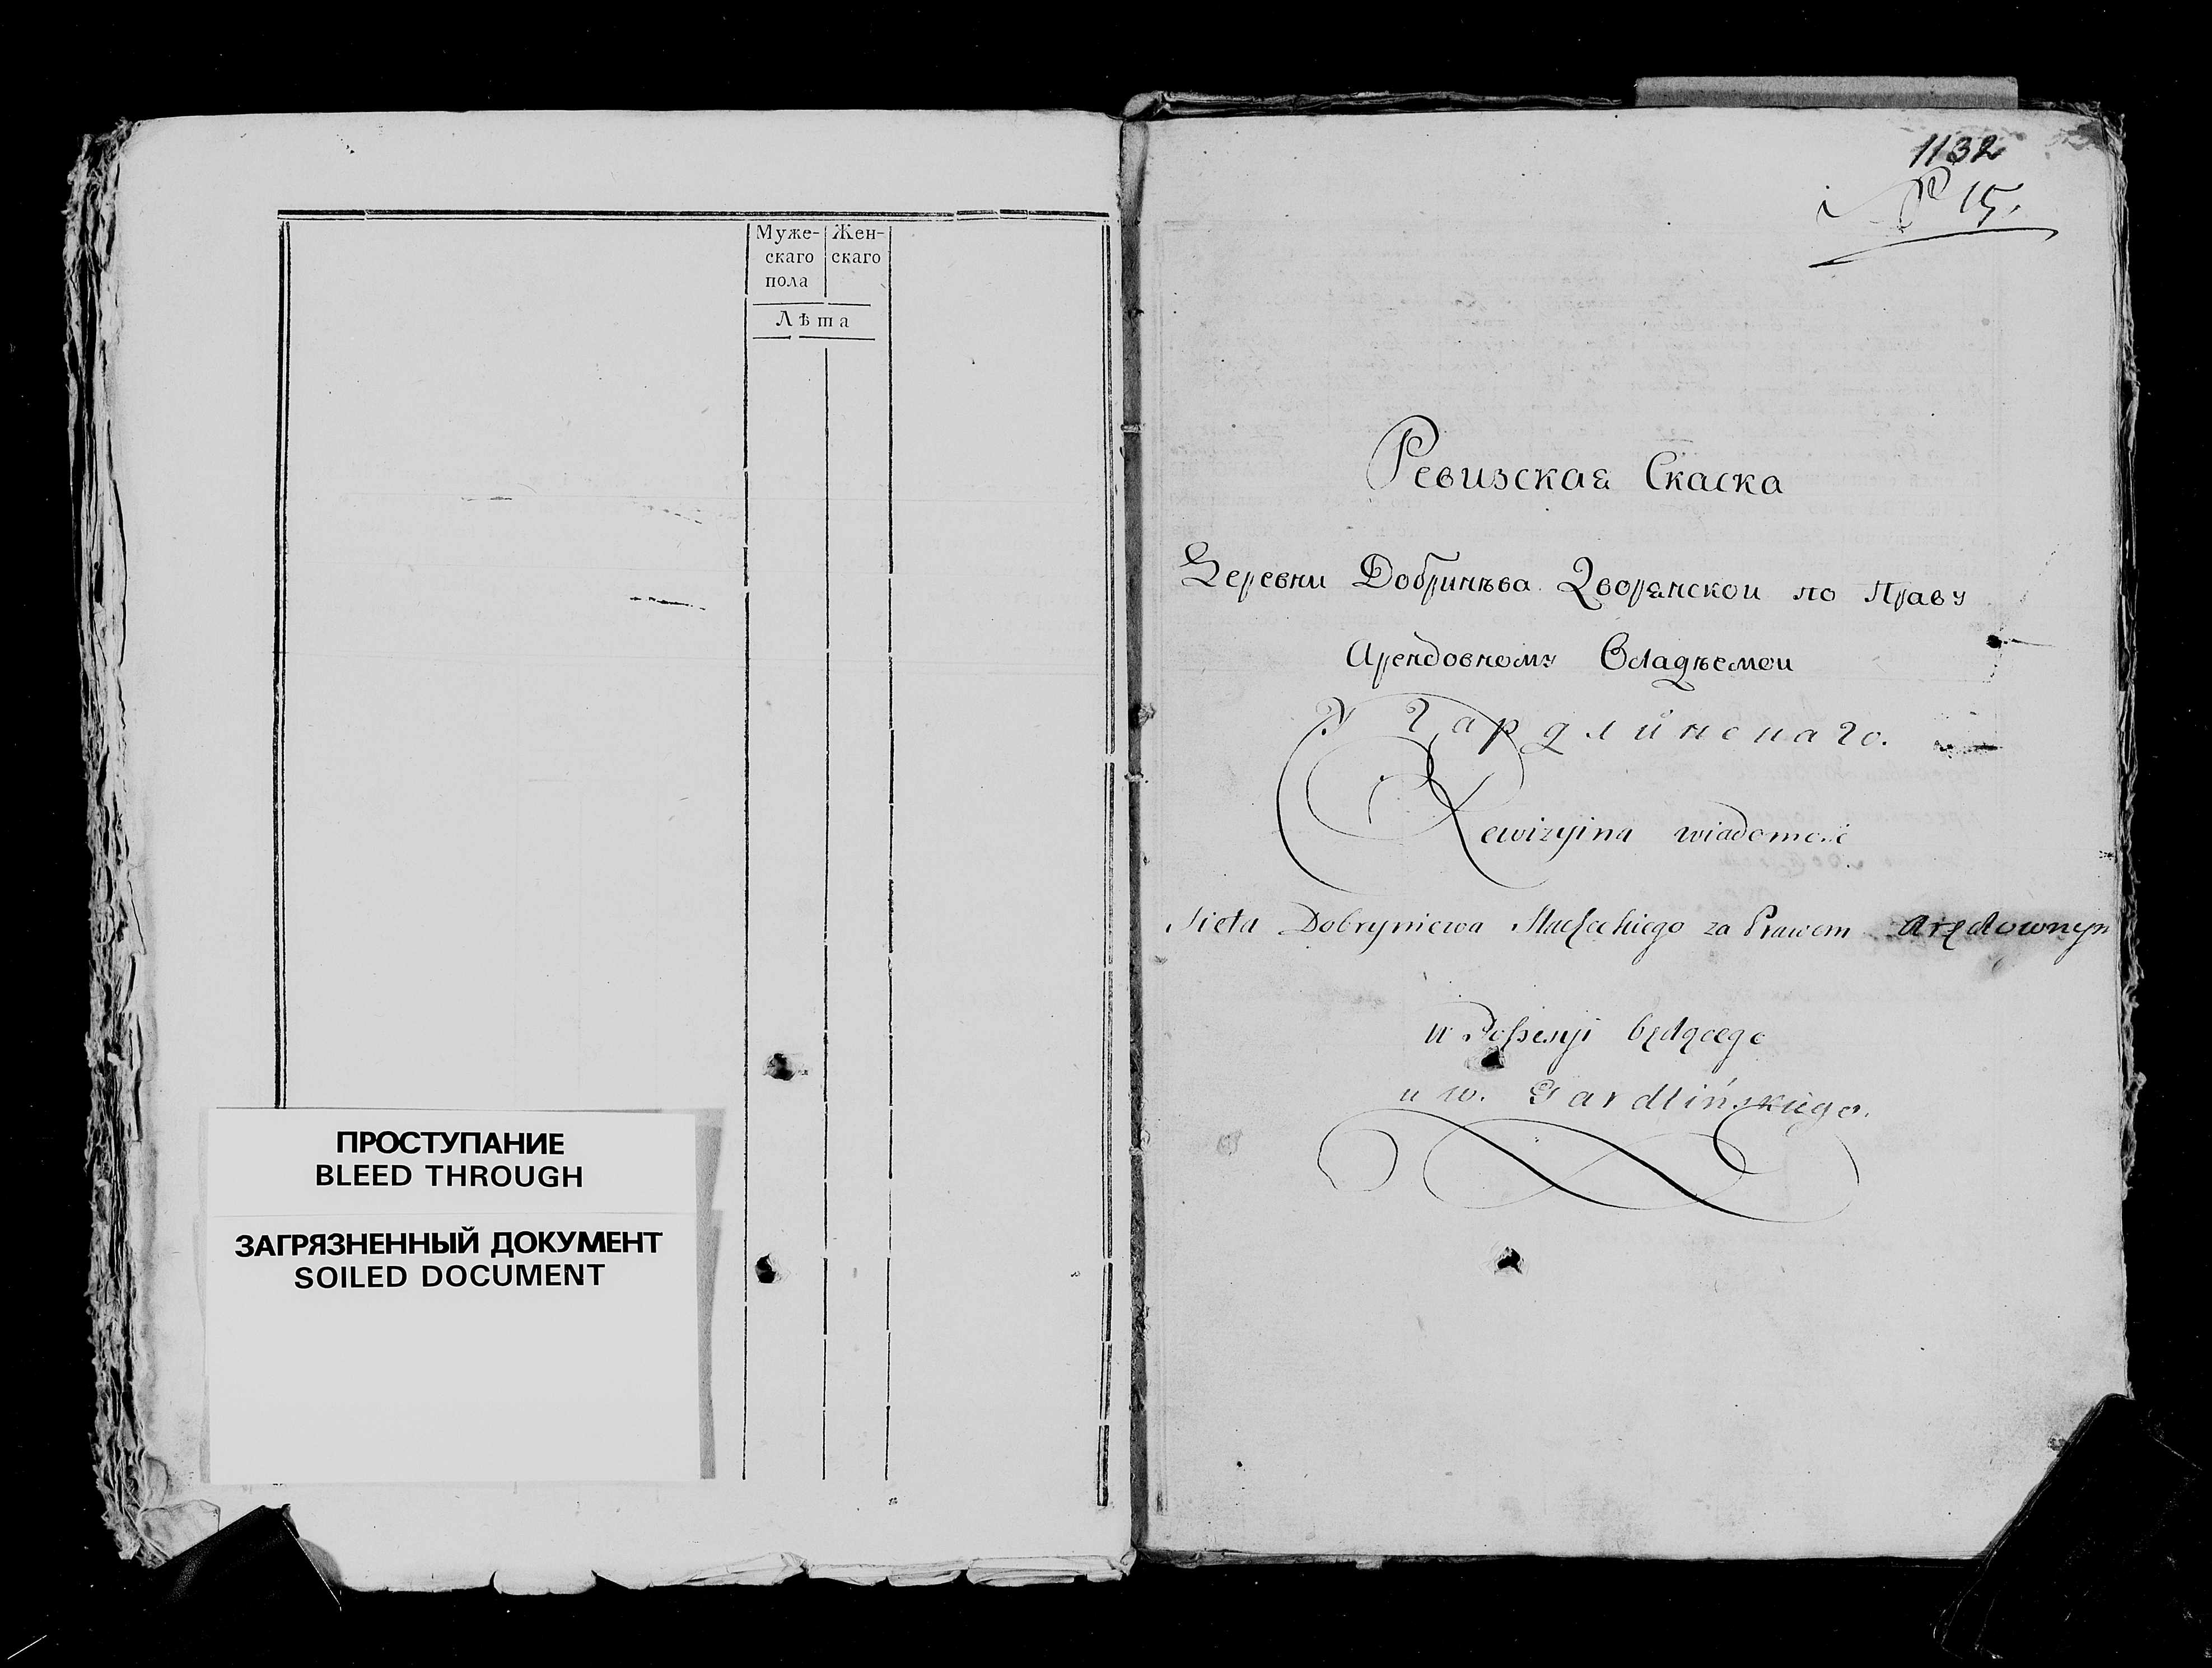 Муже-
скаго
пола
Жен-
скаго
Лѣта
ПРОСТУПАНИЕ
BLEED THROUGH
ЗАГРЯЗНЕННЫЙ ДОКУМЕНТ
SOILED DOCUMENT
1132
№ 15.
Ревизская Скаска
Деревни Добринѣва Дворянскои по Праву
Арендовному Владѣемои
Rewizyjina wiadomość
Sieła Dobryniewa Szlacheckiego za Prawem Arędownym
w Possessyi będącego
u w. Gardlińskiego.